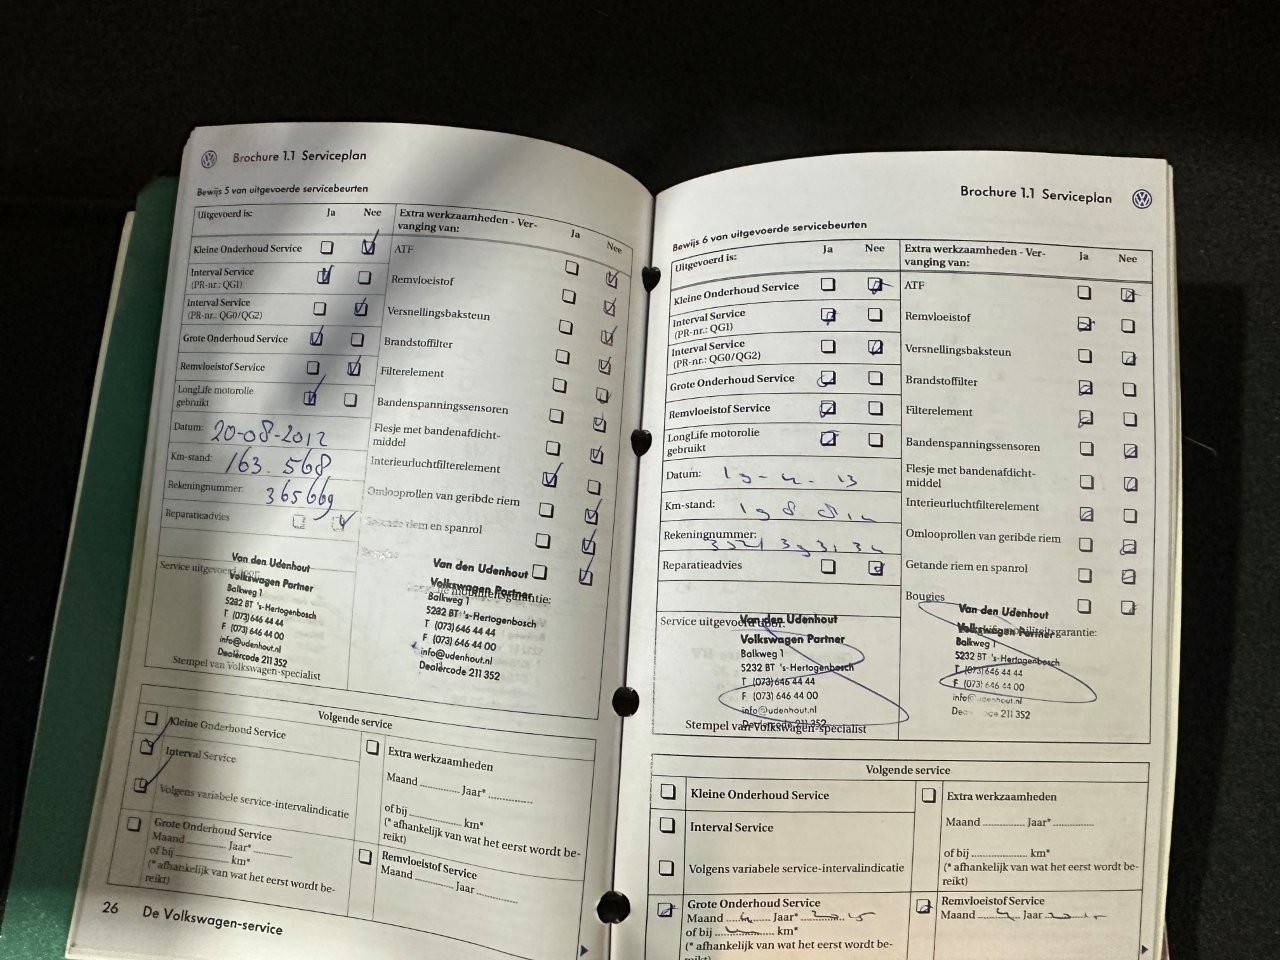 Brochure 1.1 Serviceplan
Bewijs 5 van uitgevoerde servicebeurten
Uitgevoerd is: Ja Nee
Kleine Onderhoud Service
Interval Service
(PR-nr.: QG1)
Interval Service
(PR-nr.: QG0/QG2)
Grote Onderhoud Service
Remvloeistof Service
LongLife motorolie
gebruikt
Datum: 20-08-2012
Km-stand: 163.568
Rekeningnummer: 365669
Reparatieadvies
Extra werkzaamheden - Ver-
vanging van: Ja Nee
ATF
Remvloeistof
Versnellingsbaksteun
Brandstoffilter
Filterelement
Bandenspanningssensoren
Flesje met bandenafdicht-
middel
Interieurluchtfilterelement
Omlooprollen van geribde riem
riem en spanrol
Service uitgevoerd door:
Van den Udenhout
Volkswagen Partner
Balkweg 1
5232 BT 's-Hertogenbosch
T (073) 646 44 44
F (073) 646 44 00
info@udenhout.nl
Dealercode 211 352
Stempel van Volkswagen-specialist
Van den Udenhout
Volkswagen Partner
Balkweg 1
5232 BT 's-Hertogenbosch
T (073) 646 44 44
F (073) 646 44 00
info@udenhout.nl
Dealercode 211 352
Volgende service
Kleine Onderhoud Service
Interval Service
Volgens variabele service-intervalindicatie
Grote Onderhoud Service
Maand ............ Jaar* ............
of bij ............ km*
(* afhankelijk van wat het eerst wordt be-
reikt)
Extra werkzaamheden
Maand ............ Jaar* ............
of bij ............ km*
(* afhankelijk van wat het eerst wordt be-
reikt)
Remvloeistof Service
Maand ............ Jaar ............
26 De Volkswagen-service
Brochure 1.1 Serviceplan
Bewijs 6 van uitgevoerde servicebeurten
Uitgevoerd is: Ja Nee
Kleine Onderhoud Service
Interval Service
(PR-nr.: QG1)
Interval Service
(PR-nr.: QG0/QG2)
Grote Onderhoud Service
Remvloeistof Service
LongLife motorolie
gebruikt
Datum:
Km-stand:
Rekeningnummer:
Reparatieadvies
Extra werkzaamheden - Ver-
vanging van: Ja Nee
ATF
Remvloeistof
Versnellingsbaksteun
Brandstoffilter
Filterelement
Bandenspanningssensoren
Flesje met bandenafdicht-
middel
Interieurluchtfilterelement
Omlooprollen van geribde riem
Getande riem en spanrol
Bougies
Service uitgevoerd door:
Van den Udenhout
Volkswagen Partner
Balkweg 1
5232 BT 's-Hertogenbosch
T (073) 646 44 44
F (073) 646 44 00
info@udenhout.nl
Dealercode 211 352
Stempel van Volkswagen-specialist
Van den Udenhout
Volkswagen Partner
Balkweg 1
5232 BT 's-Hertogenbosch
T (073) 646 44 44
F (073) 646 44 00
211 352
Volgende service
Kleine Onderhoud Service
Interval Service
Volgens variabele service-intervalindicatie
Grote Onderhoud Service
Maand 4 Jaar* 2015
of bij ............ km*
(* afhankelijk van wat het eerst wordt be-
reikt)
Extra werkzaamheden
Maand ............ Jaar* ............
of bij ............ km*
(* afhankelijk van wat het eerst wordt be-
reikt)
Remvloeistof Service
Maand 4 Jaar 2015